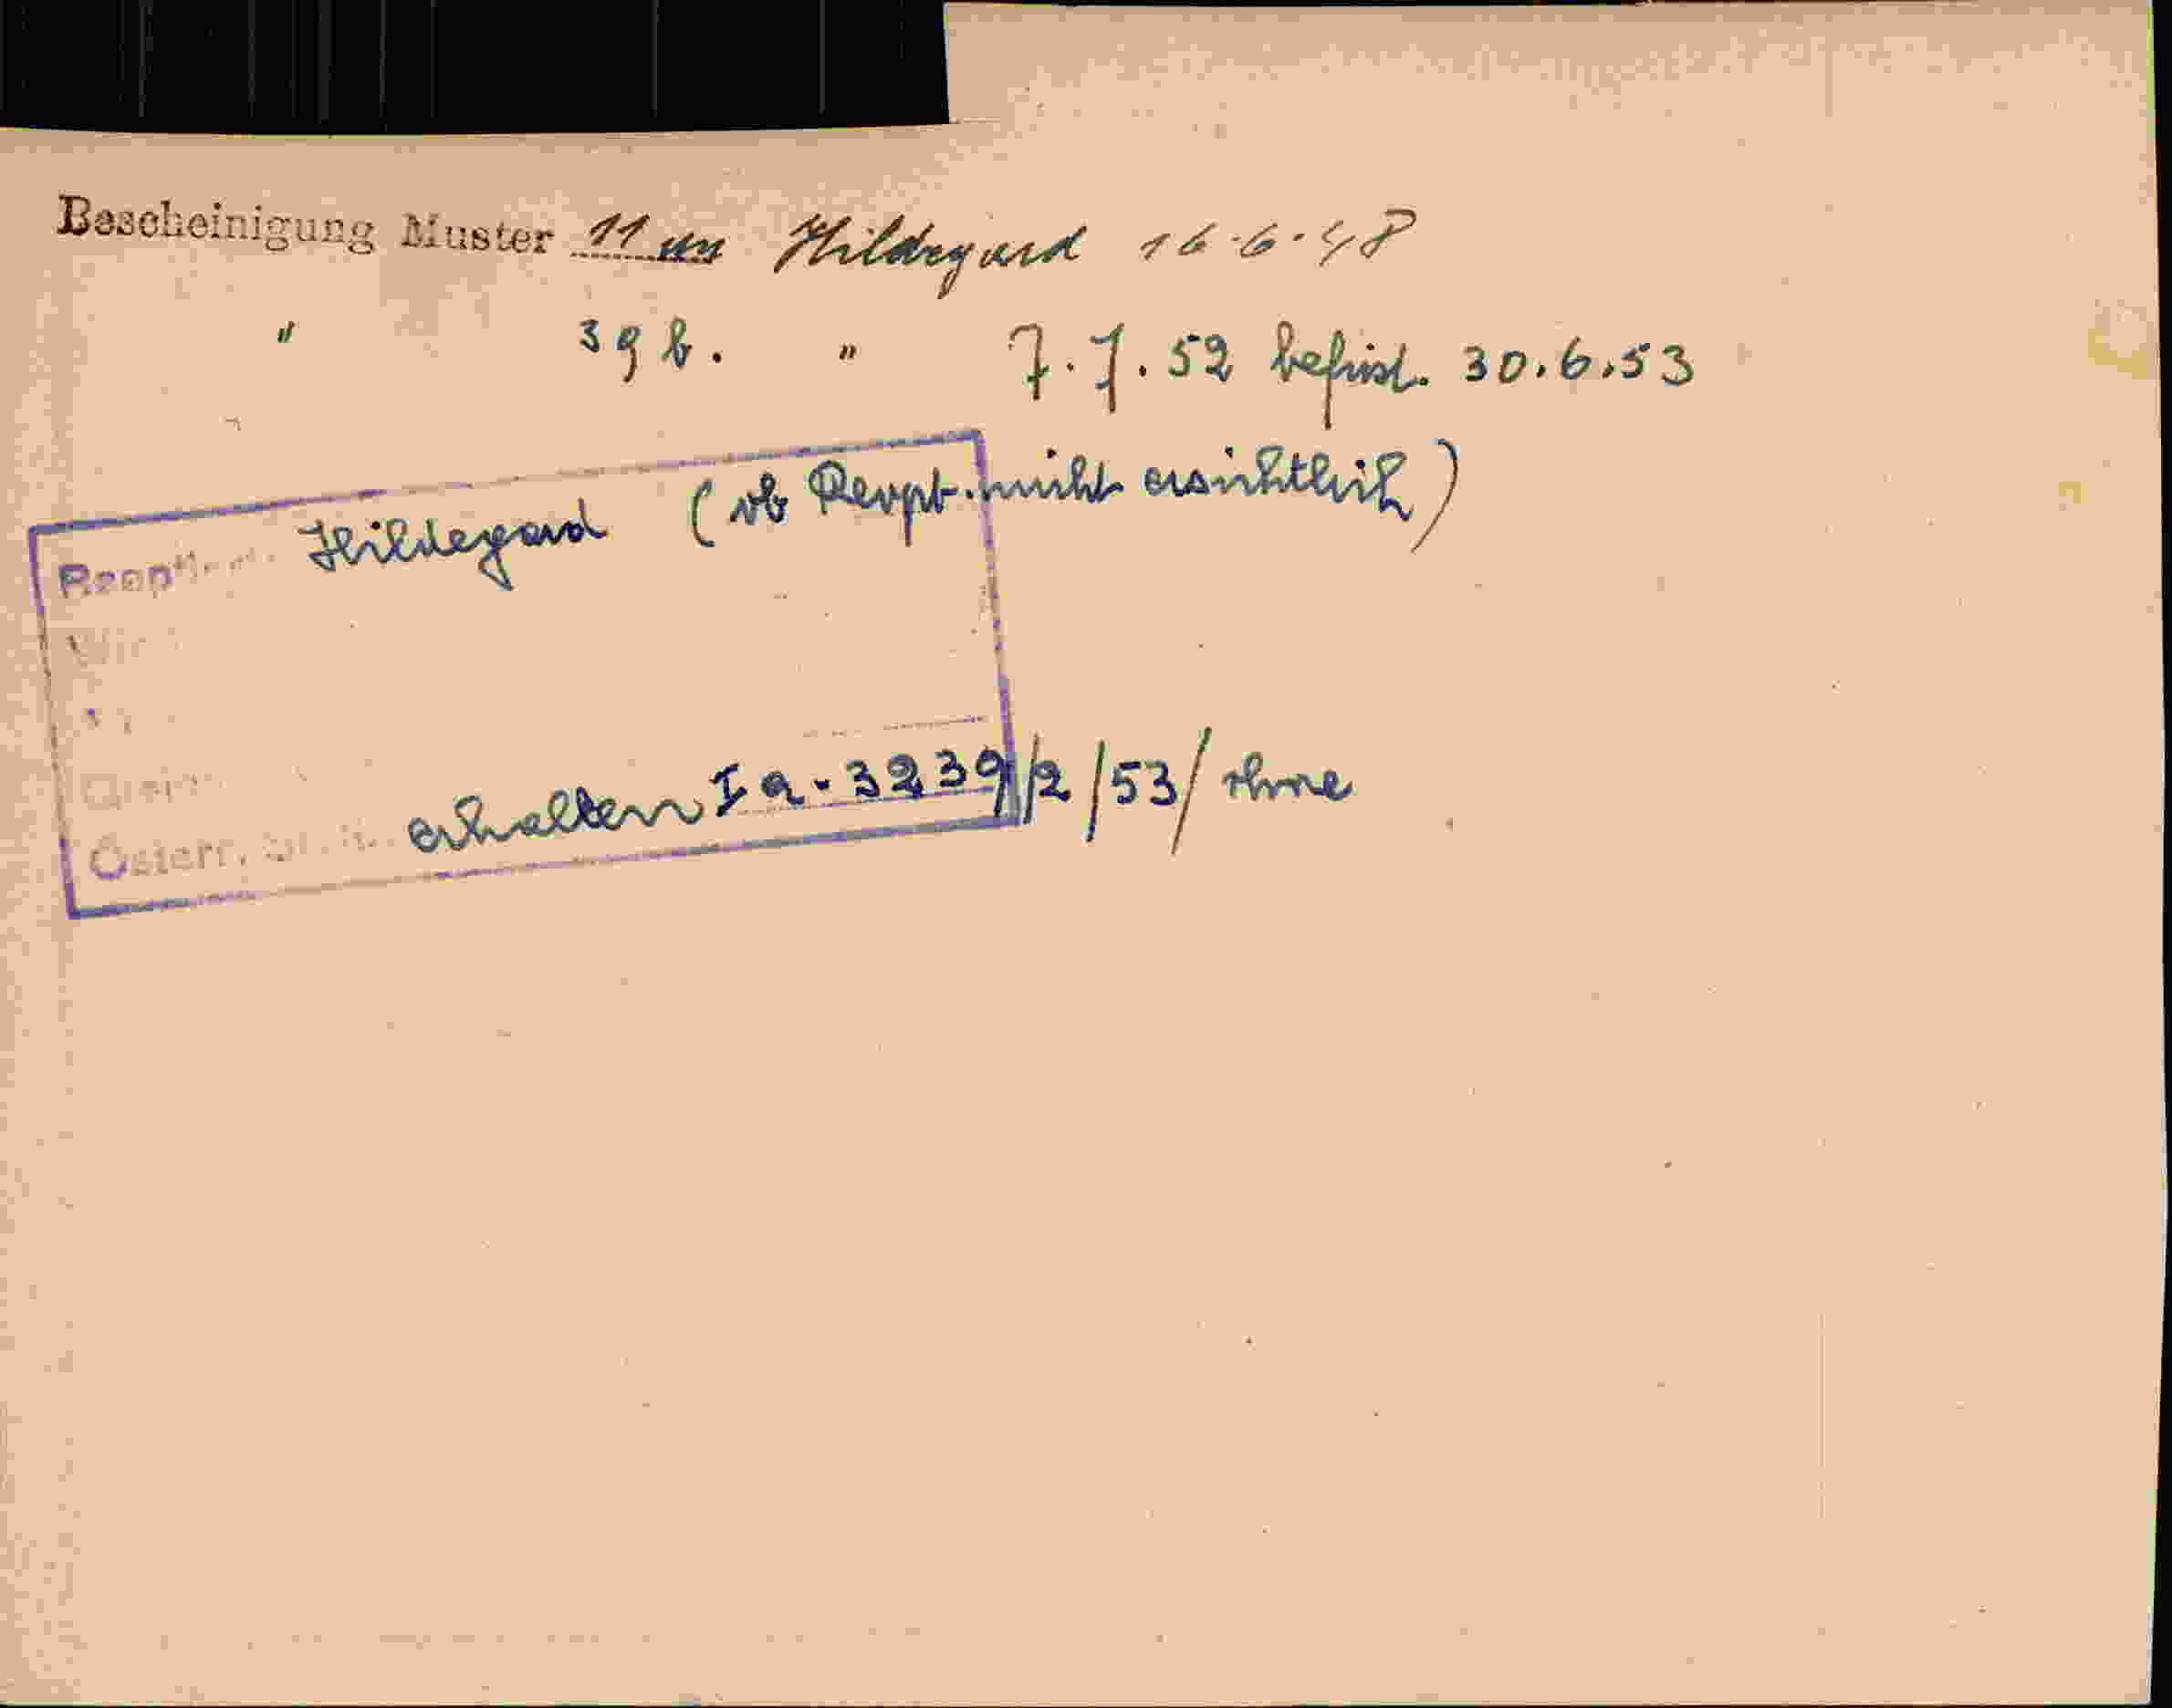 Bescheinigung Muster 11 an Hildegard 16.6.48
" 39 b. " 7.7.52 befrist. 30.6.53
Hildegard (ob Rückopt. nicht ersichtlich)
erhalten Ia-3239/2/53/ ohne
Österr.